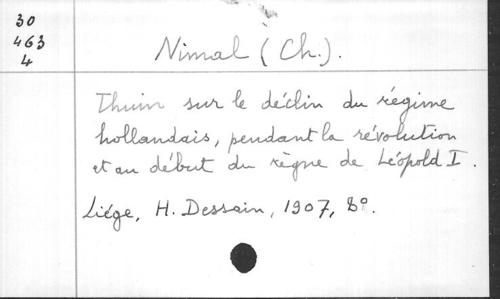 30
463
4
Nimal (Ch.).
Thuin sur le déclin du régime
hollandais, pendant la révolution
et au début du règne de Léopold I.
Liége, H. Dessain, 1907, 8º.